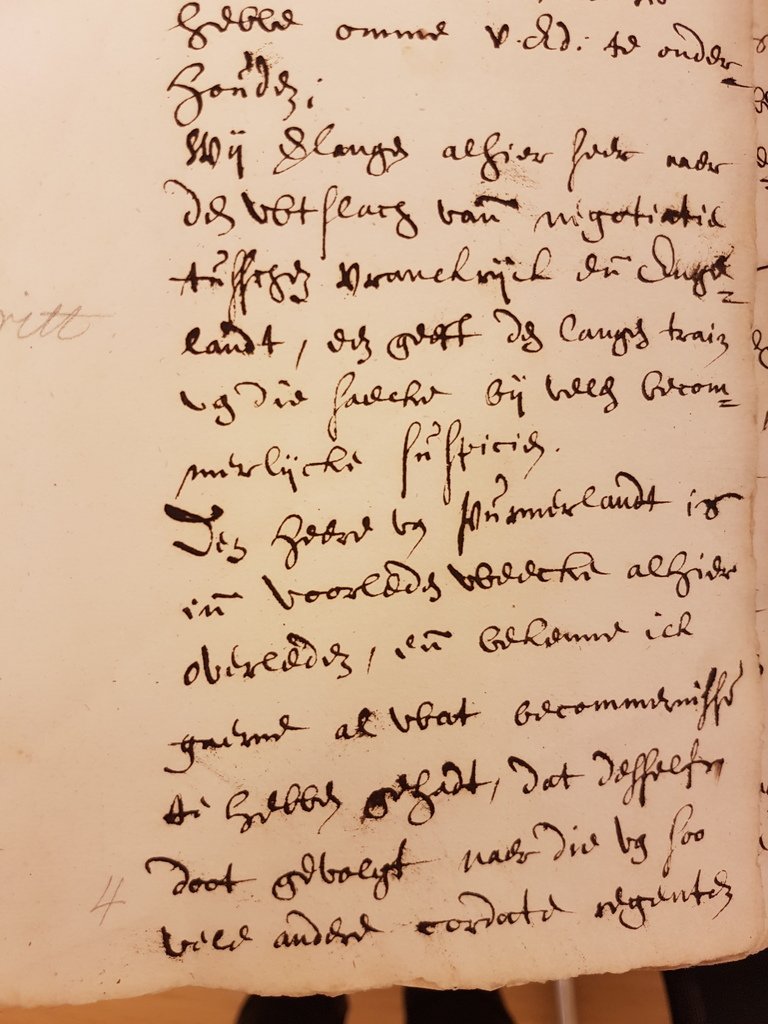 hebbe omme v. Ed: te onder-
houden;
Wij verlangen alhier seer naer
den uutslach vann negotiatie
tusschen Vranckrijck enn Enge-
landt, en geeft den langen train
van die saecke bij velen becom-
merlijcke suspicien.
Den heere van Purmerlandt is
inn voorleden weecke alhier
overleden, enn bekenne ick
gaerne al wat becommernisse
te hebben gehadt, dat desselfs
doot gevolgt naer die van soo
4
vele andere cordate regenten